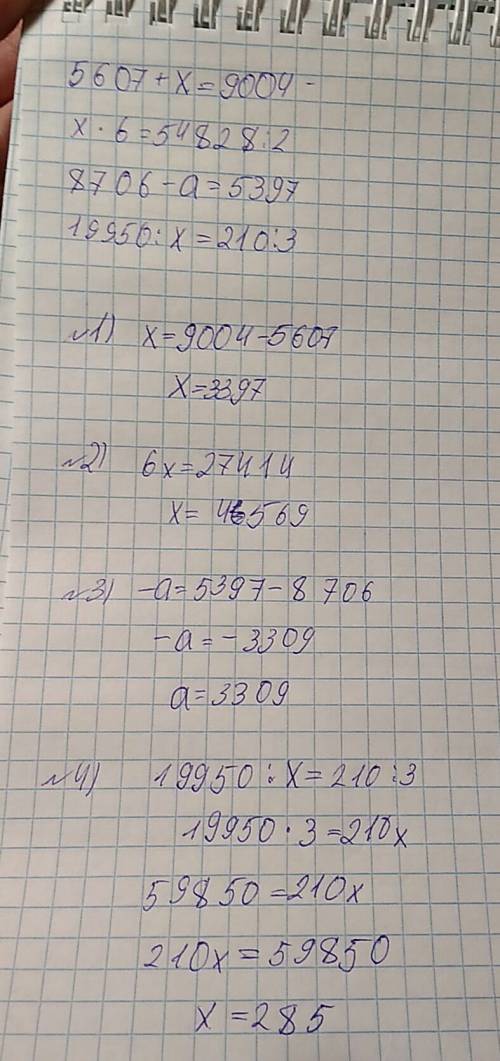 5607+x=9004-
x·6=54828:2
8706-a=5397
19950:x=210:3
№1) x=9004-5607
x=3397
№2) 6x=27414
x=4569
№3) -a=5397-8706
-a=-3309
a=3309
№4) 19950:x=210:3
19950·3=210x
59850=210x
210x=59850
x=285